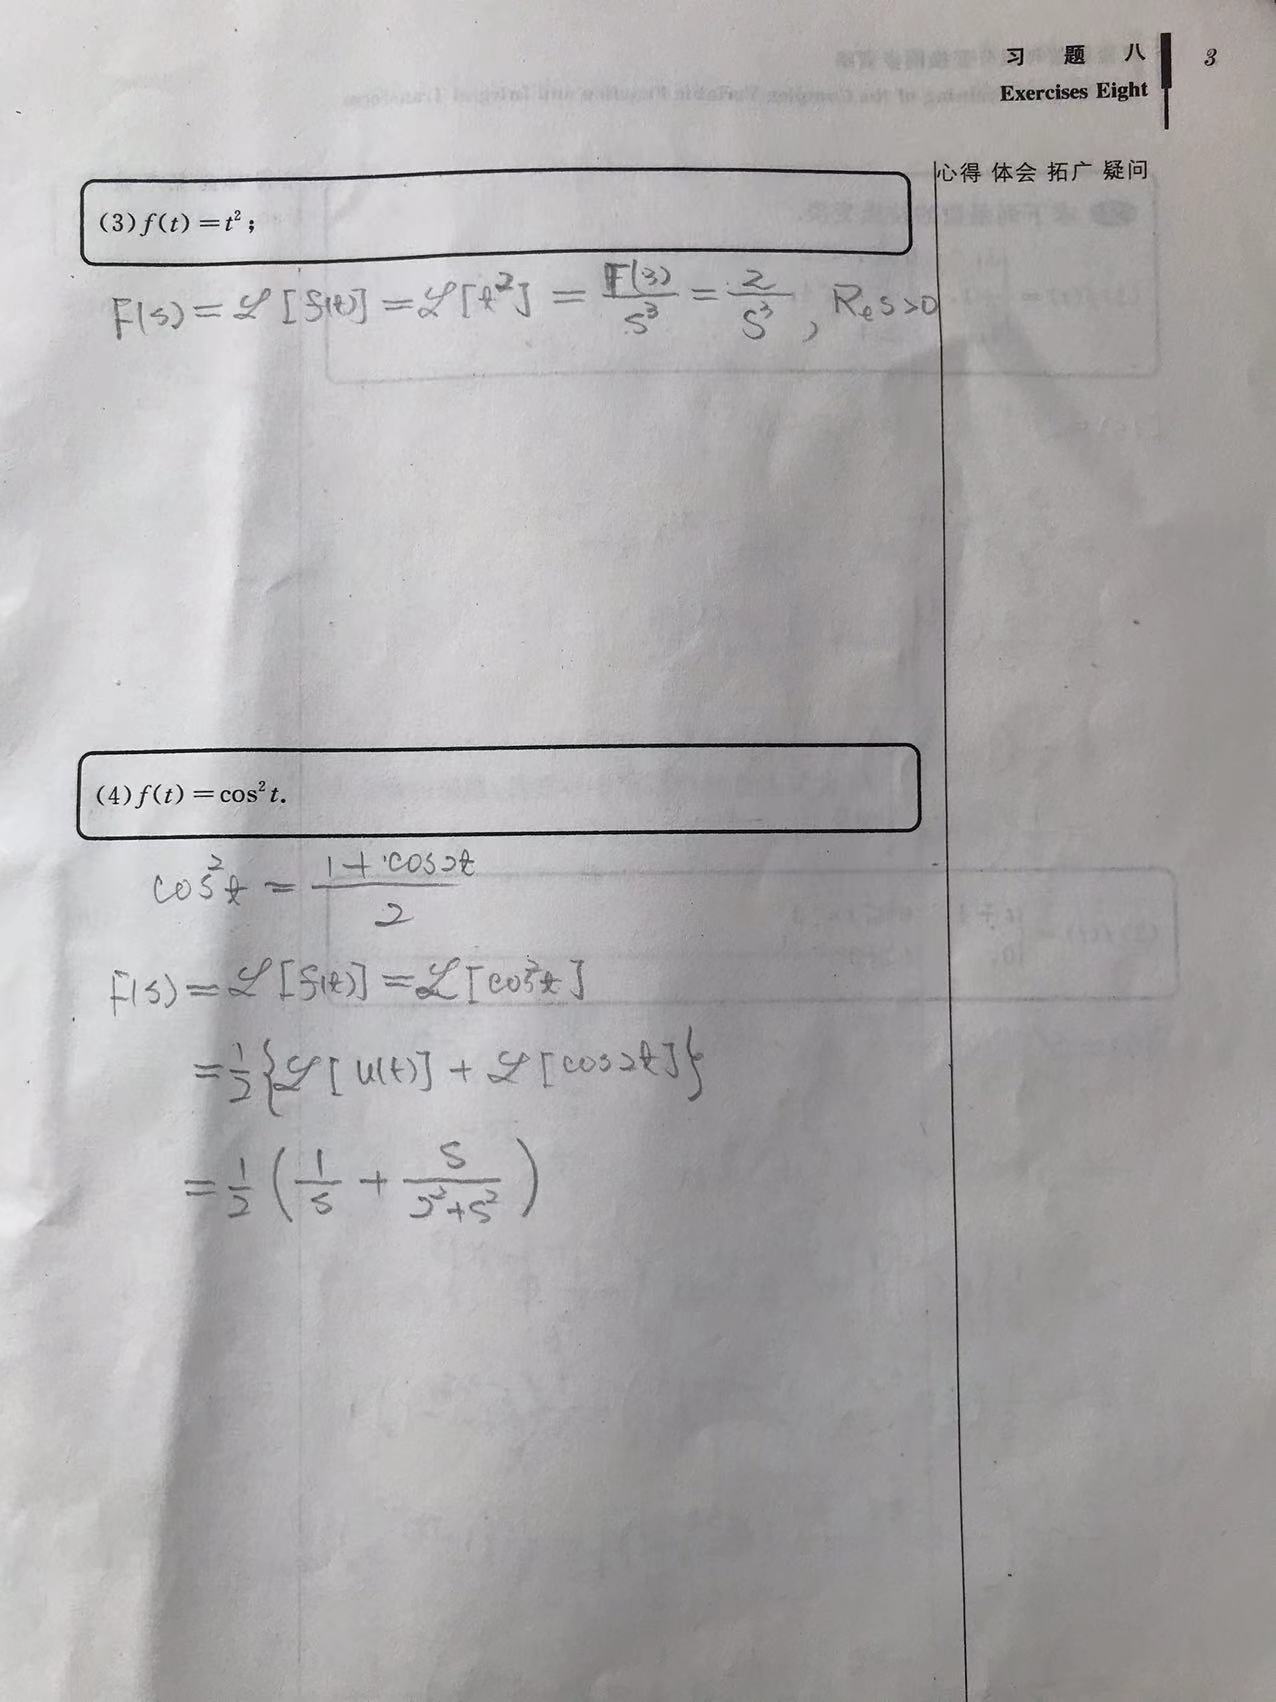 习 题 八 3
Exercises Eight
心得 体会 拓广 疑问
(3) f(t)=t²;
F(s) = ℒ[f(t)] = ℒ[t²] = Γ(3)/s³ = 2/s³, Re s>0
(4) f(t)=cos²t.
cos²t = (1+cos2t)/2
F(s) = ℒ[f(t)] = ℒ[cos²t]
= 1/2{ℒ[u(t)] + ℒ[cos2t]}
= 1/2(1/s + s/(2²+s²))